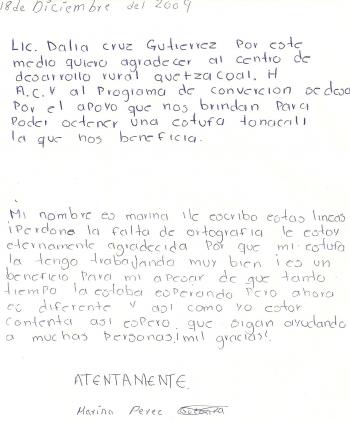 18 de Diciembre del 2009
Lic. Dalia cruz Gutierrez Por este
medio quiero agradecer al centro de
desarrollo rural quetzacoal. H
A.C. y al Programa de convercion se desa
Por el apoyo que nos brindan Para
Poder octener una estufa tonacali
la que nos beneficia.
Mi nombre es marina ile escribo estas lineas
iPerdone la falta de ortografia le estoy
eternamente agradecida Por que mi estufa
la tengo trabajando muy bien i es un
beneficio Para mi apesar de que tanto
tiempo la estaba esperando Pero ahora
es diferente y asi como yo estoy
contenta asi espero que sigan ayudando
a muchas Personas!mil gracias!
ATENTAMENTE.
Marina Perez